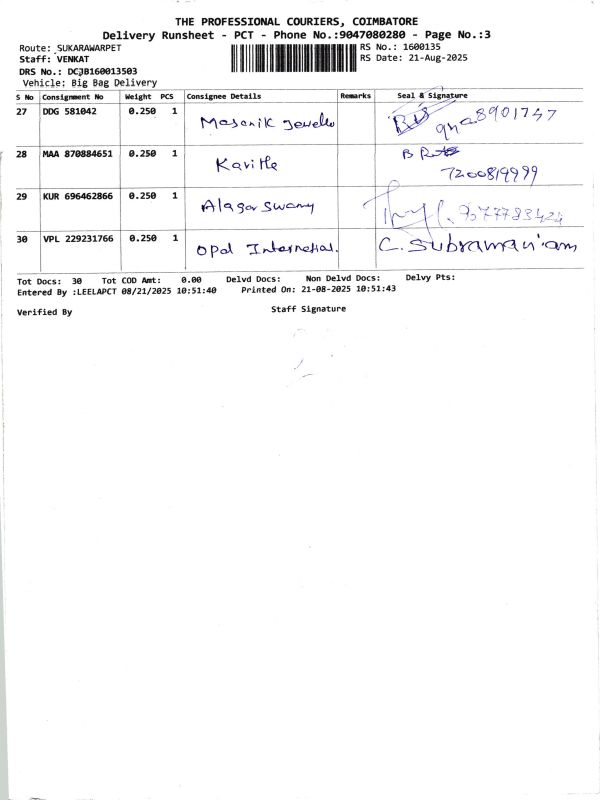 THE PROFESSIONAL COURIERS, COIMBATORE
Delivery Runsheet - PCT - Phone No.:9047080280 - Page No.:3
Route: SUKARAWARPET RS No.: 1600135
Staff: VENKAT RS Date: 21-Aug-2025
DRS No.: DCJB160013503
Vehicle: Big Bag Delivery
S No Consignment No Weight PCS Consignee Details Remarks Seal & Signature
27 DDG 581042 0.250 1
28 MAA 870884651 0.250 1 Kavitha B
7200819999
29 KUR 696462866 0.250 1 Alagar Swamy
30 VPL 229231766 0.250 1 Opal C. Subramaniam
Tot Docs: 30 Tot COD Amt: 0.00 Delvd Docs: Non Delvd Docs: Delvy Pts:
Entered By :LEELAPCT 08/21/2025 10:51:40 Printed On: 21-08-2025 10:51:43
Verified By Staff Signature